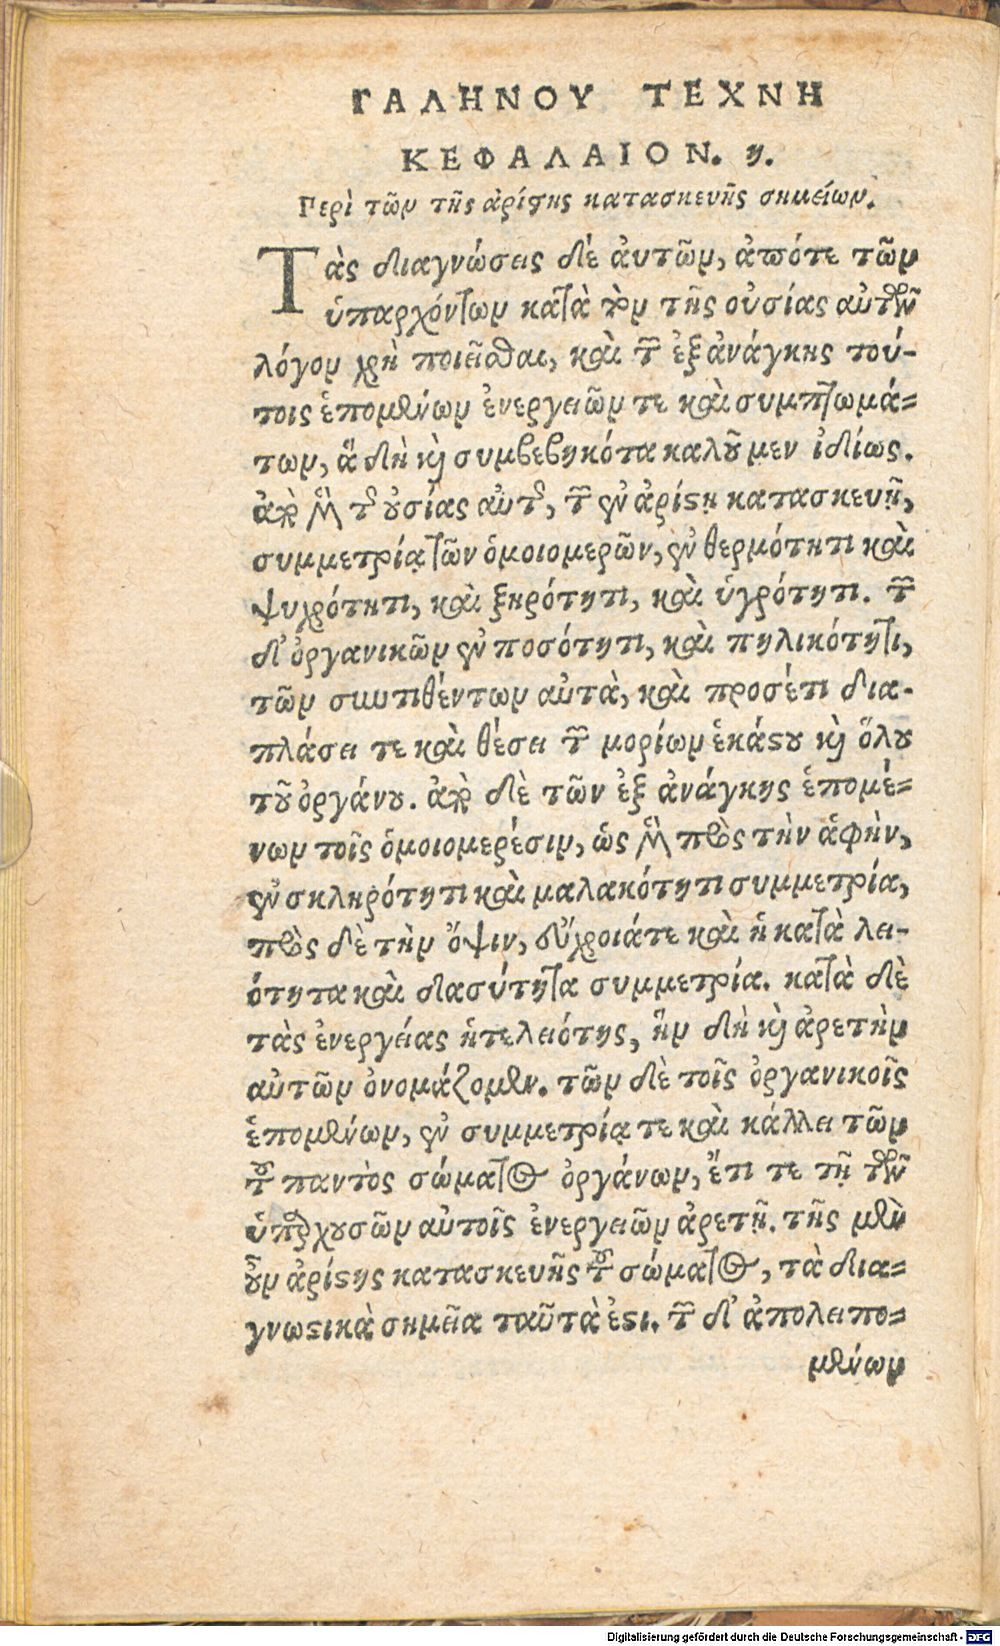 ΓΑΛΗΝΟΥ ΤΕΧΝΗ
ΚΕΦΑΛΑΙΟΝ. η.
Περὶ τῶν τῆς ἀρίστης κατασκευῆς σημείων.
Τὰς διαγνώσεις δὲ ἀυτῶν, ἀπότε τῶν
ὑπαρχόντων κατὰ τὸν τῆς οὐσίας αὐτῶν
λόγον χρὴ ποιεῖσθαι, καὶ τῶν ἐξ ἀνάγκης τού-
τοις ἑπομένων ἐνεργειῶν τε καὶ συμπτωμά=
των, ἃ δὴ καὶ συμβεβηκότα καλοῦμεν ἰδίως.
ἀπὸ μὲν τῆς οὐσίας αὐτῆς, τῶν ἐν ἀρίστῃ κατασκευῇ,
συμμετρίᾳ τῶν ὁμοιομερῶν, ἐν θερμότητι καὶ
ψυχρότητι, καὶ ξηρότητι, καὶ ὑγρότητι. τῶν
δ' ὀργανικῶν ἐν ποσότητι, καὶ πηλικότητι,
τῶν συντιθέντων αὐτὰ, καὶ προσέτι δια-
πλάσει τε καὶ θέσει τῶν μορίων ἑκάστου καὶ ὅλου
τοῦ ὀργάνου. ἀπὸ δὲ τῶν ἐξ ἀνάγκης ἑπομέ=
νων τοῖς ὁμοιομερέσιν, ὡς μὲν πρὸς τὴν ἁφὴν,
ἐν σκληρότητι καὶ μαλακότητι συμμετρία,
πρὸς δὲ τὴν ὄψιν, εὔχροιάτε καὶ ἡ κατὰ λει-
ότητα καὶ δασύτητα συμμετρία. κατὰ δὲ
τὰς ἐνεργείας ἡ τελειότης, ἣν δὴ καὶ ἀρετὴν
αὐτῶν ὀνομάζομεν. τῶν δὲ τοῖς ὀργανικοῖς
ἑπομένων, ἐν συμμετρίᾳ τε καὶ κάλλει τῶν
τοῦ παντὸς σώματος ὀργάνων, ἔτι τε τῇ τῶν
ὑπαρχουσῶν αὐτοῖς ἐνεργειῶν ἀρετῇ. τῆς μὲν
οὖν ἀρίστης κατασκευῆς τοῦ σώματος, τὰ δια=
γνωστικὰ σημεῖα ταῦτὰ ἐστι. τῶν δ' ἀπολειπο=
μένων
Digitalisierung gefördert durch die Deutsche Forschungsgemeinschaft - DFG